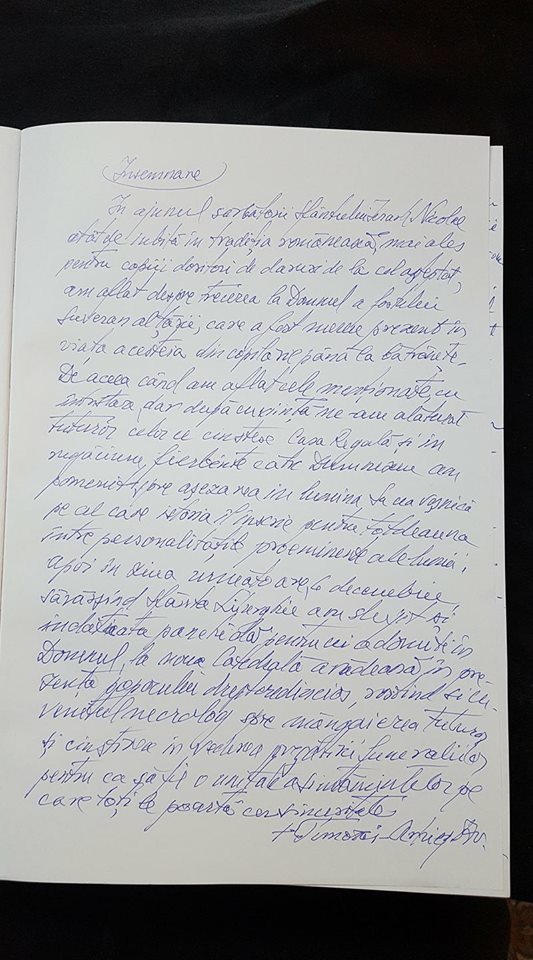 Însemnare
În ajunul sărbătorii Sfântului Ierarh Nicolae
atât de iubită în tradiția românească, mai ales
pentru copiii doritori de daruri de la cel așteptat,
am aflat despre trecerea la Domnul a fostului
Suveran al țării, care a fost mereu prezent în
viața acesteia din copilărie până la bătrânețe.
De aceea când am aflat cele menționate, cu
întristare, dar după cuviință ne-am alăturat
tuturor celor ce cinstesc Casa Regală și în
rugăciune fierbinte către Dumnezeu am
pomenit spre așezarea în lumina Sa cea veșnică
pe cel care istoria îl înscrie pentru totdeauna
între personalitățile proeminente ale lumii;
apoi în ziua următoare, 6 decembrie
săvârșind Sfânta Liturghie am slujit și
îndătinata panihidă pentru cei adormiți în
Domnul, la noua Catedrală arădeană în pre-
zența poporului dreptcredincios, rostind și cu-
vântul necrolog spre mângâierea tuturor
și cinstirea în vederea pregătirii funeraliilor
pentru ca să fie o unitate a simțămintelor pe
care toți le poartă
+ Timotei